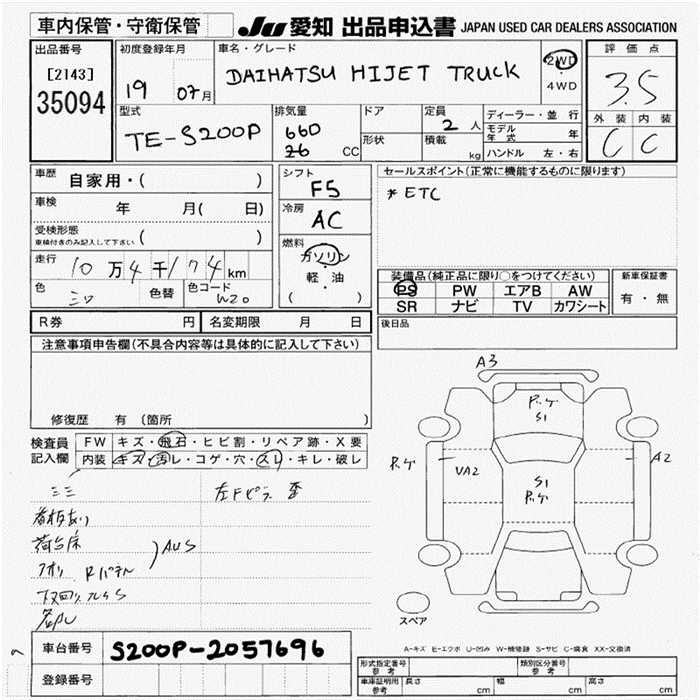 車内保管・守衛保管
JU 愛知 出品申込書 JAPAN USED CAR DEALERS ASSOCIATION
出品番号
[2143]
35094
初度登録年月
19 07月
車名・グレード
DAIHATSU HIJET TRUCK
2WD
・
4WD
評価点
3.5
外装 内装
C C
型式
TE-S200P
排気量
660
26 CC
ドア
形状
定員
2 人
積載
kg
ディーラー・並行
モデル年式 年
ハンドル 左・右
車歴 自家用・( )
車検 年 月( 日)
受検形態
車検付きのみ記入して下さい ( )
走行 10万4千174km
色 シロ 色替 色コード W20
シフト
F5
冷房
AC
燃料
ガソリン
・
軽・油
( )
セールスポイント(正常に機能するものに限ります)
* ETC
装備品(純正品に限り○をつけてください)
PS PW エアB AW
SR ナビ TV カワシート
新車保証書
有・無
R券 円 名変期限 月 日
後日品
注意事項申告欄(不具合内容等は具体的に記入して下さい)
修復歴 有 (箇所 )
検査員
記入欄
FW キズ・飛石・ヒビ割・リペア跡・X要
内装 キズ・汚レ・コゲ・穴・スレ・キレ・破レ
左Fピラ 歪
看板あり
荷台床
アオリ Rパネル
AUS
下回り
A3
S1
VA2
S1
A2
スペア
A-キズ E-エクボ U-凹み W-補修跡 S-サビ C-腐食 XX-交換済
車台番号 S200P-2057696
登録番号
形式指定番号
参考
類別区分番号
参考
車庫証明用
参考
長さ cm 幅 cm 高さ cm